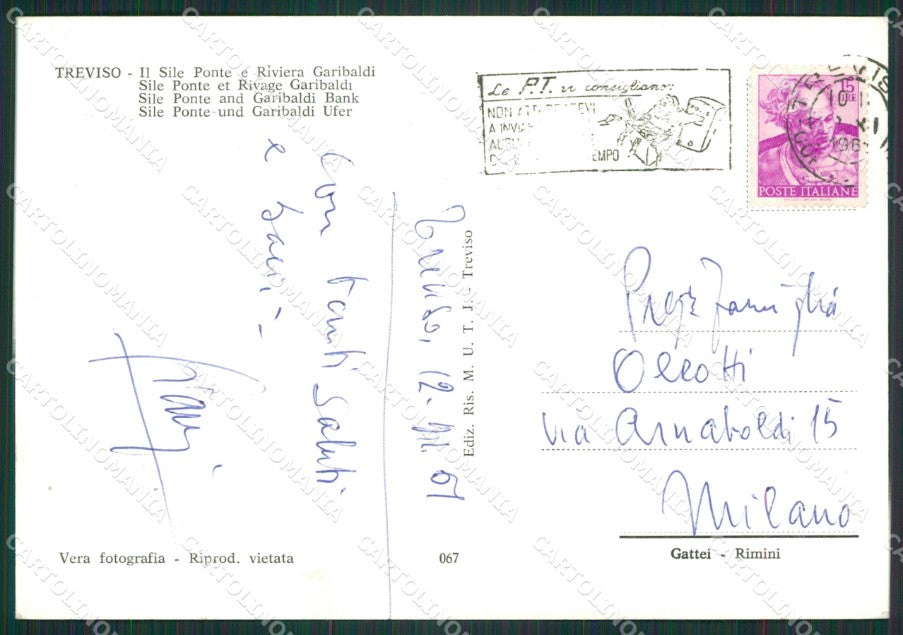 TREVISO - Il Sile Ponte e Riviera Garibaldi
Sile Ponte et Rivage Garibaldi
Sile Ponte and Garibaldi Bank
Sile Ponte und Garibaldi Ufer
Le P.T. vi consigliano:
NON
A
TEMPO
15
LIRE
POSTE ITALIANE
Con tanti saluti
e baci
Treviso, 12. 61
Ediz. Ris. M. U. T. J. - Treviso
Famiglia
via Arnaboldi 15
Milano
Vera fotografia - Riprod. vietata
067
Gattei - Rimini
CARTOLINOMANIA